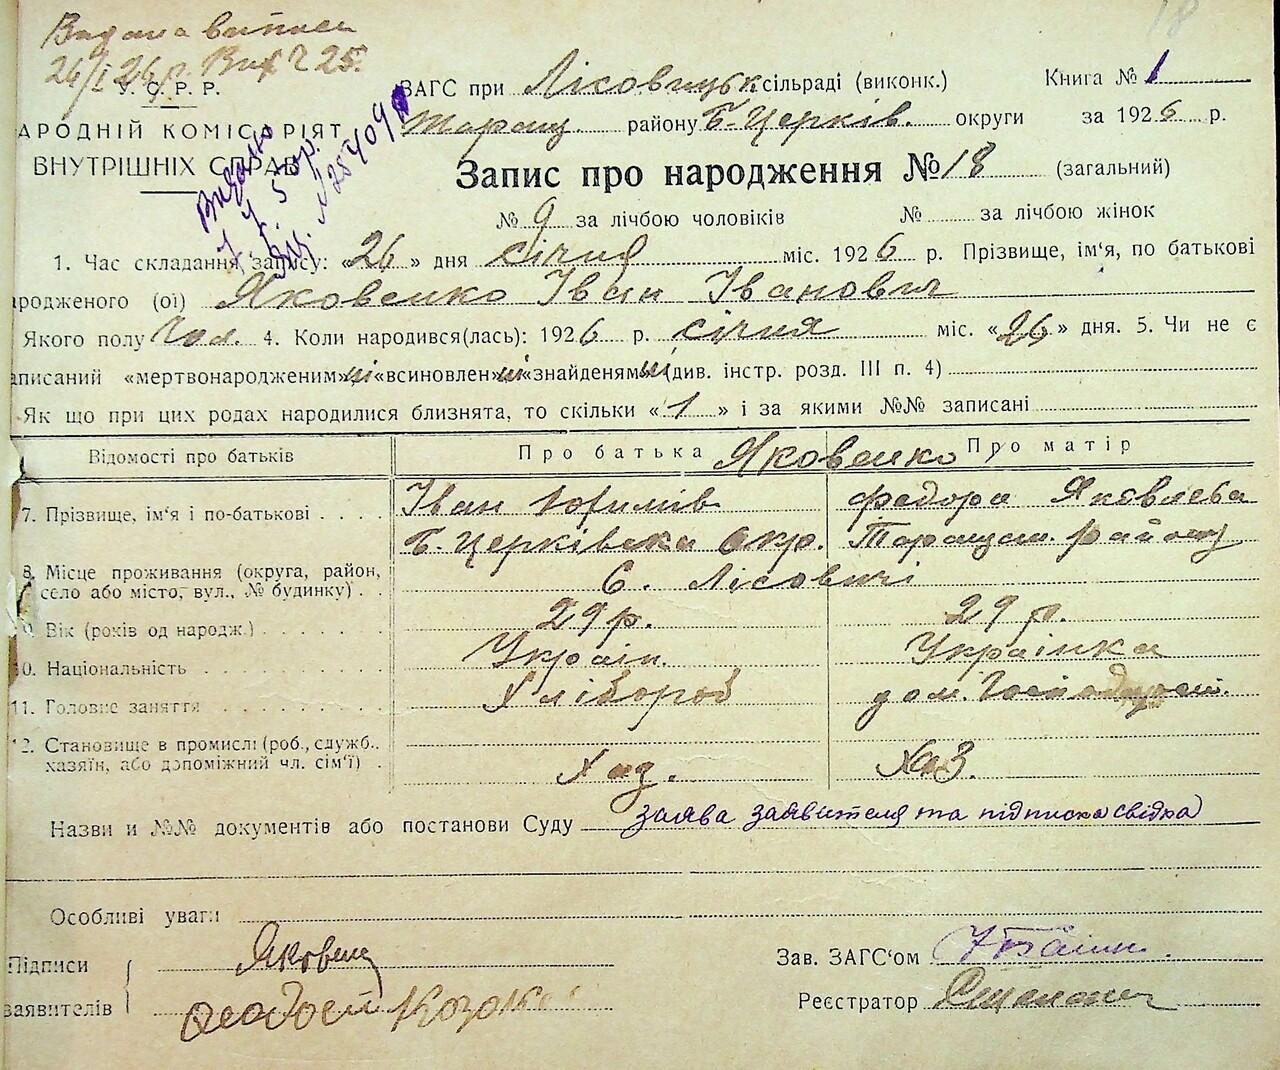 18
Видана виписк
26/I 26 р. Вих № 25.
У. С. Р. Р.
АРОДНІЙ КОМІСАРІЯТ
ВНУТРІШНІХ СПРАВ
Видано
ЗАГС при Лісовицьк сільраді (виконк.) Книга № 1
Таращ. району Б-Церків. округи за 1926 р.
Запис про народження № 18 (загальний)
№ 9 за лічбою чоловіків № за лічбою жінок
1. Час складання запису: «26» дня січня міс. 1926 р. Прізвище, ім‘я, по батькові
ародженого (ої) Яковенко Іван Іванович
Якого полу чол. 4. Коли народився(лась): 1926 р. січня міс. «26» дня. 5. Чи не є
аписаний «мертвонародженим» ні «всиновлен» ні «знайденям» ні (див. інстр. розд. III п. 4)
Як що при цих родах народилися близнята, то скільки «1» і за якими №№ записані
Відомості про батьків Про батька Яковенко Про матір
7. Прізвище, ім‘я і по-батькові Іван Юхимів Федора Яковлева
Б. Церківська Окр. Таращан. району
8. Місце проживання (округа, район, село або місто, вул., № будинку) С. Лісовичі
9. Вік (років од народж.) 29 р. 29 р.
10. Національність Україн. Українка
11. Головне заняття Хлібороб дом. Господарст.
12. Становище в промислі (роб., служб.,
хазяїн, або допоміжний чл. сім‘ї) Хаз. Хаз.
Назви и №№ документів або постанови Суду заява заявителя та підписка свідка
Особливі уваги
Підписи Яковен Зав. ЗАГС‘ом
заявителів Реєстратор